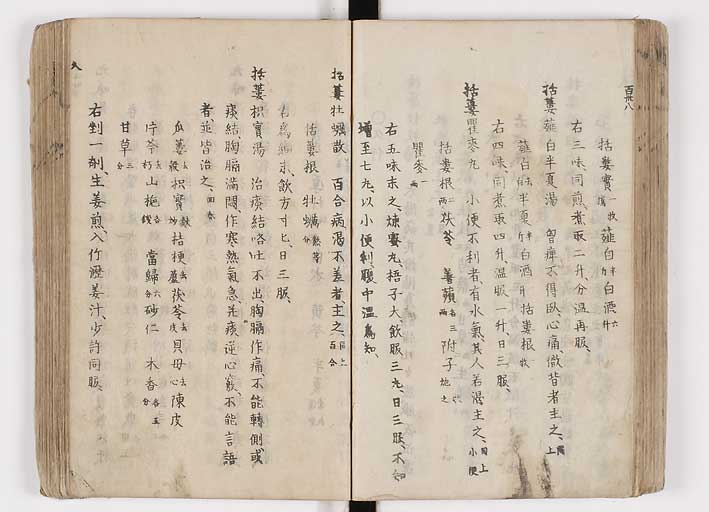 百卅八
栝蔞實一枚 薤白半斤 白酒七升
右三味同煎煮取二升分溫再服、
栝蔞薤白半夏湯 胸痺不得臥、心痛、徹背者主之、同上
薤白 半夏 白酒 栝蔞根
右四味、同煮取四升、溫服一升、日三服、
栝蔞瞿麥丸 小便不利者、有水氣、其人若渴主之、同上小便
栝蔞根二兩 茯苓 薯蕷各三兩 附子
瞿麥一兩
右五味末之、煉蜜丸梧子大、飲服三丸、日三服、不知
增至七丸、以小便利腹中溫爲知
栝蔞牡蠣散 百合病渴不差者主之、同上百合
栝蔞根 牡蠣熬等分
右爲細末、飲方寸匕、日三服、
栝蔞枳實湯 治痰結咯吐不出胸膈作痛不能轉側或
痰結胸膈滿悶、作寒熱氣急、並痰迷心竅、不能言語
者、並皆治之、回春
瓜蔞去殼 枳實麩炒 桔梗去蘆 茯苓去皮 貝母去心 陳皮
片芩去朽 山梔各 當歸六分 砂仁 木香各五分
甘草三分
右剉一劑、生姜煎、入竹瀝姜汁、少許同服、